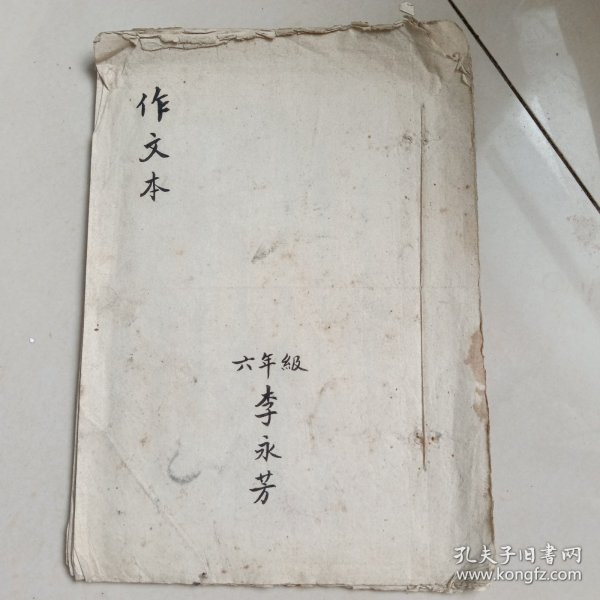 作文本
六年級
李永芳
孔夫子旧书网
www.kongfz.com